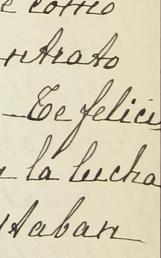 e como
ntrato
_ Te felici
la lucha
taban